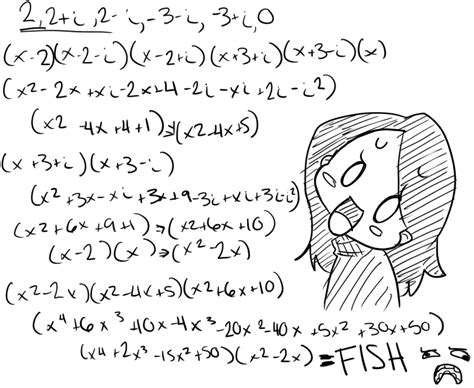 2, 2+i, 2-i, -3-i, -3+i, 0
(x-2)(x-2-i)(x-2+i)(x+3+i)(x+3-i)(x)
(x²-2x+xi-2x+4-2i-xi+2i-i²)
(x2-4x+4+1)⇒(x2-4x+5)
(x+3+i)(x+3-i)
(x²+3x-xi+3x+9-3i+xi+3i-i²)
(x²+6x+9+1)⇒(x2+6x+10)
(x-2)(x)⇒(x²-2x)
(x²-2x)(x²-4x+5)(x2+6x+10)
(x⁴+6x³+10x-4x³-20x²-40x+5x²+30x+50)
(x4+2x³-15x²+50)(x²-2x)=FISH